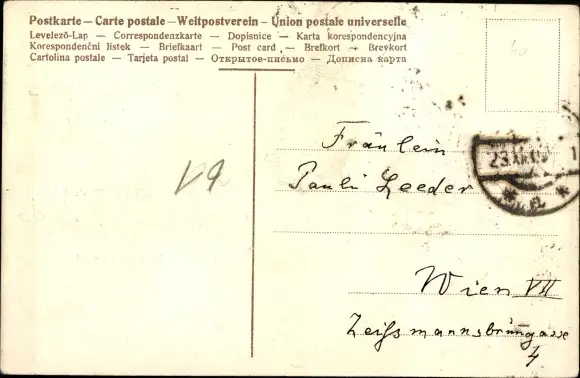 Postkarte — Carte postale — Weltpostverein — Union postale universelle
Levelező-Lap — Correspondenzkarte — Dopisnice — Karta korespondencyjna
Korespondenční lístek — Briefkaart — Post card — Brefkort — Brevkort
Cartolina postale — Tarjeta postal — Открытое-письмо — Дописна карта
V9
Fräulein
Pauli Leeder
23.XII
Wien VII
Zeißmannsbrunngasse
4